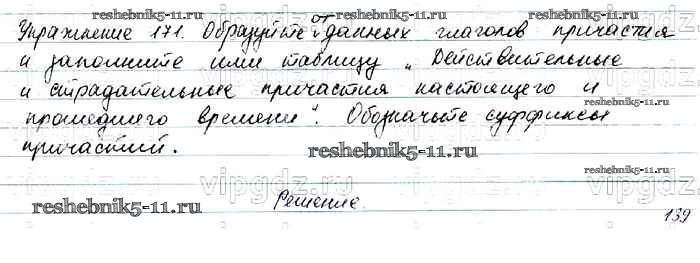 reshebnik5-11.ru reshebnik5-11.ru
Упражнение 171. Образуйте от данных глаголов причастия
и заполните ими таблицу „Действительные
и страдательные причастия настоящего и
прошедшего времени“. Обозначьте суффиксы
причастий.
reshebnik5-11.ru
vipgdz.ru vipgdz.ru
reshebnik5-11.ru
Решение.
139